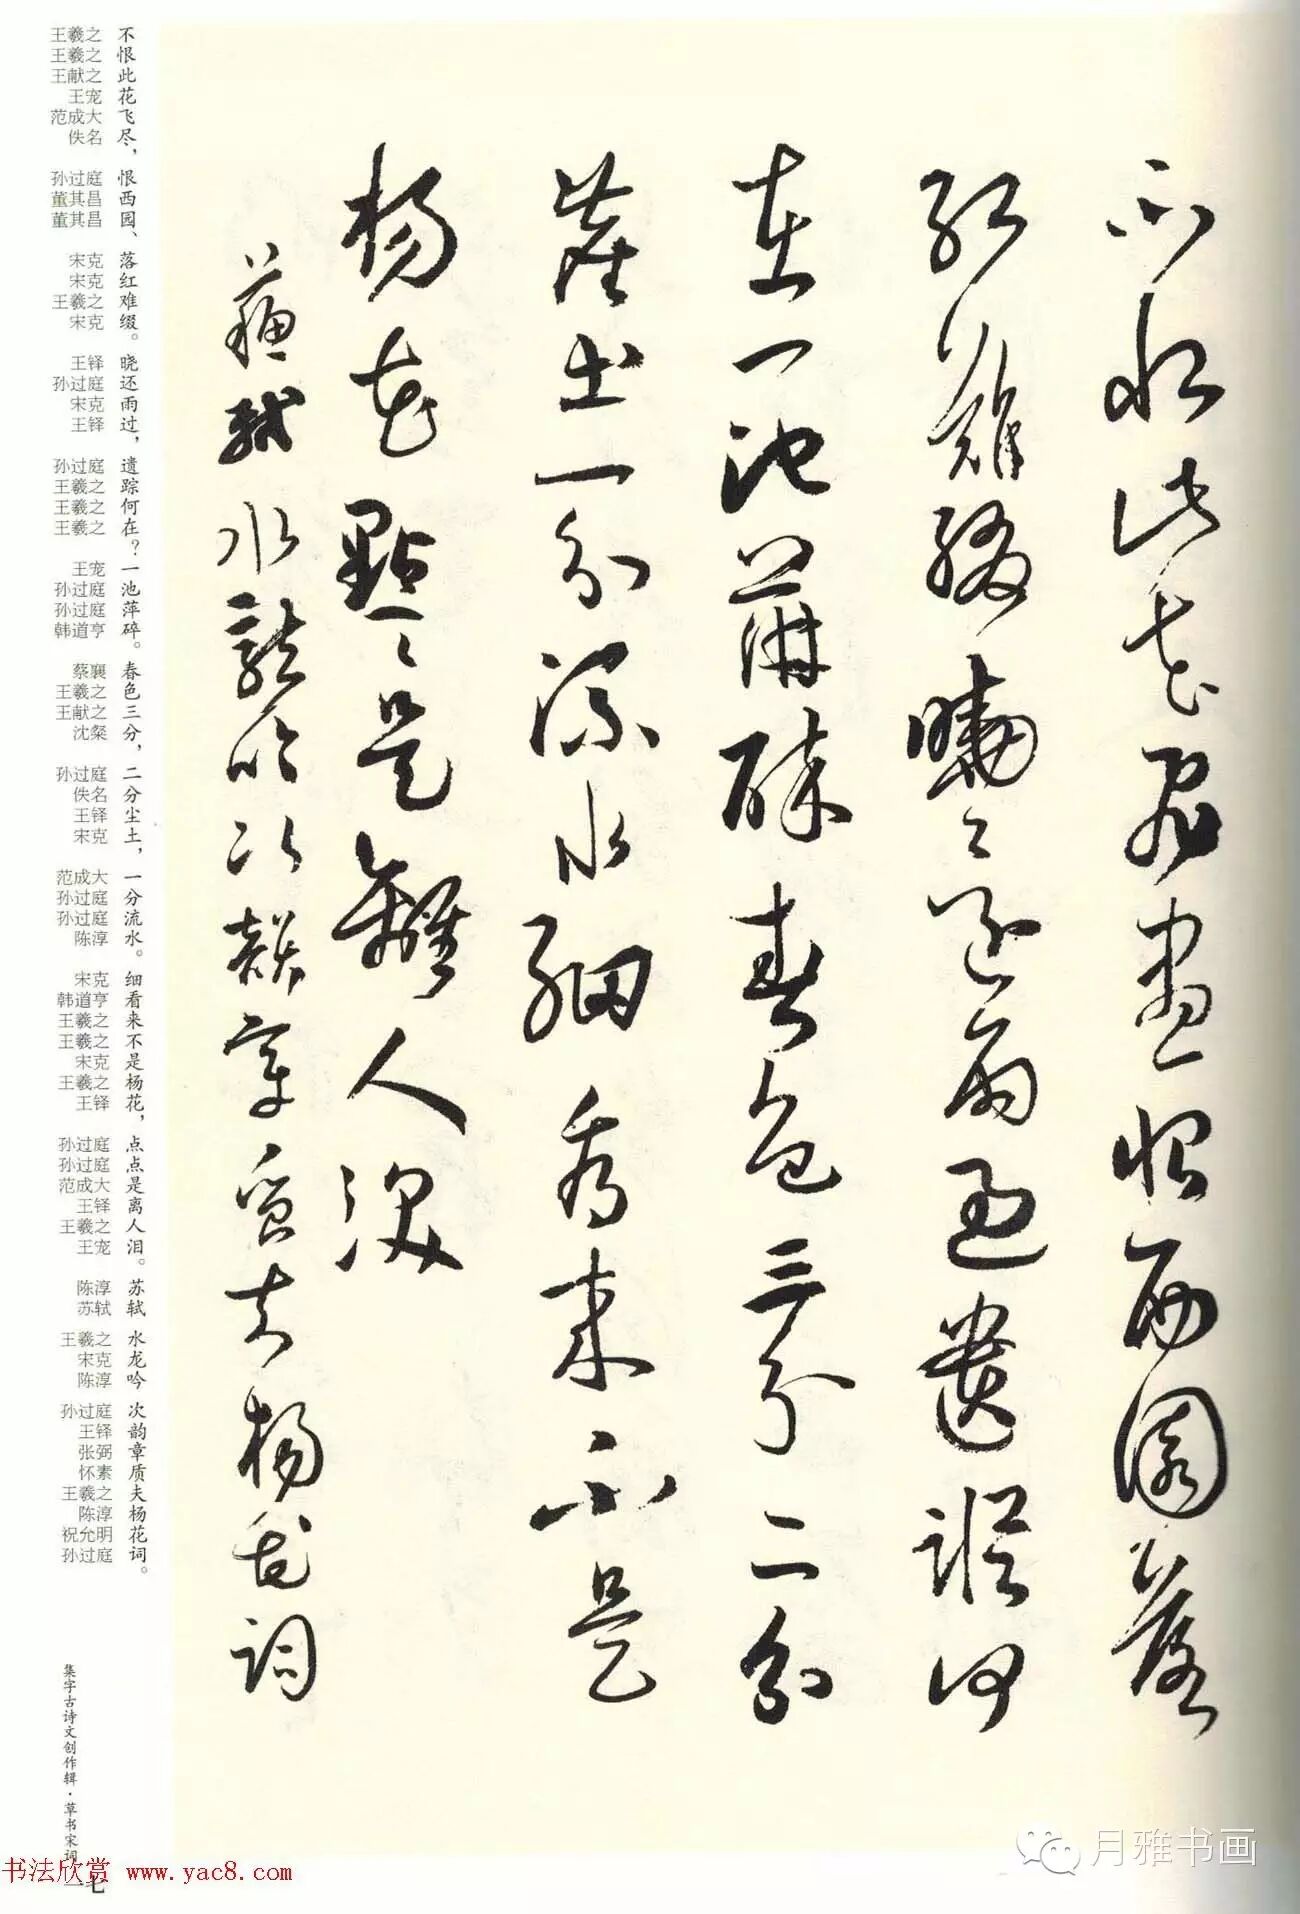 不恨此花飛盡恨西園落
紅難綴曉還雨過遺蹤何
在一池萍碎春色三分二分
塵土一分流水細看來不是
楊花點〻是離人淚
蘇軾水龍吟次韻章質夫楊花詞
不恨此花飞尽，恨西园、落红难缀。晓还雨过，遗踪何在？一池萍碎。春色三分，二分尘土，一分流水。细看来不是杨花，点点是离人泪。苏轼水龙吟次韵章质夫杨花词。
王羲之
王羲之
王献之
王宠
范成大
佚名
孙过庭
董其昌
董其昌
宋克
宋克
王羲之
宋克
王铎
孙过庭
宋克
王铎
孙过庭
王羲之
王羲之
王羲之
王宠
孙过庭
孙过庭
韩道亨
蔡襄
王羲之
王献之
沈粲
孙过庭
佚名
王铎
宋克
范成大
孙过庭
孙过庭
陈淳
宋克
韩道亨
王羲之
王羲之
宋克
王羲之
王铎
孙过庭
孙过庭
范成大
王铎
王羲之
王宠
陈淳
苏轼
王羲之
宋克
陈淳
孙过庭
王铎
张弼
怀素
王羲之
陈淳
祝允明
孙过庭
集字古诗文创作辑·草书宋词
一七
书法欣赏 www.yac8.com
月雅书画